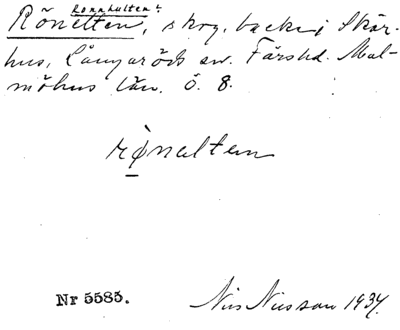 Rönnhulten?
Rönetten, skog, backe i Skär-
hus, Långaröds sn. Färs hd. Mal-
möhus län. ö. 8.
rønalten
Nr 5585.
Nils Nilsson 1937.